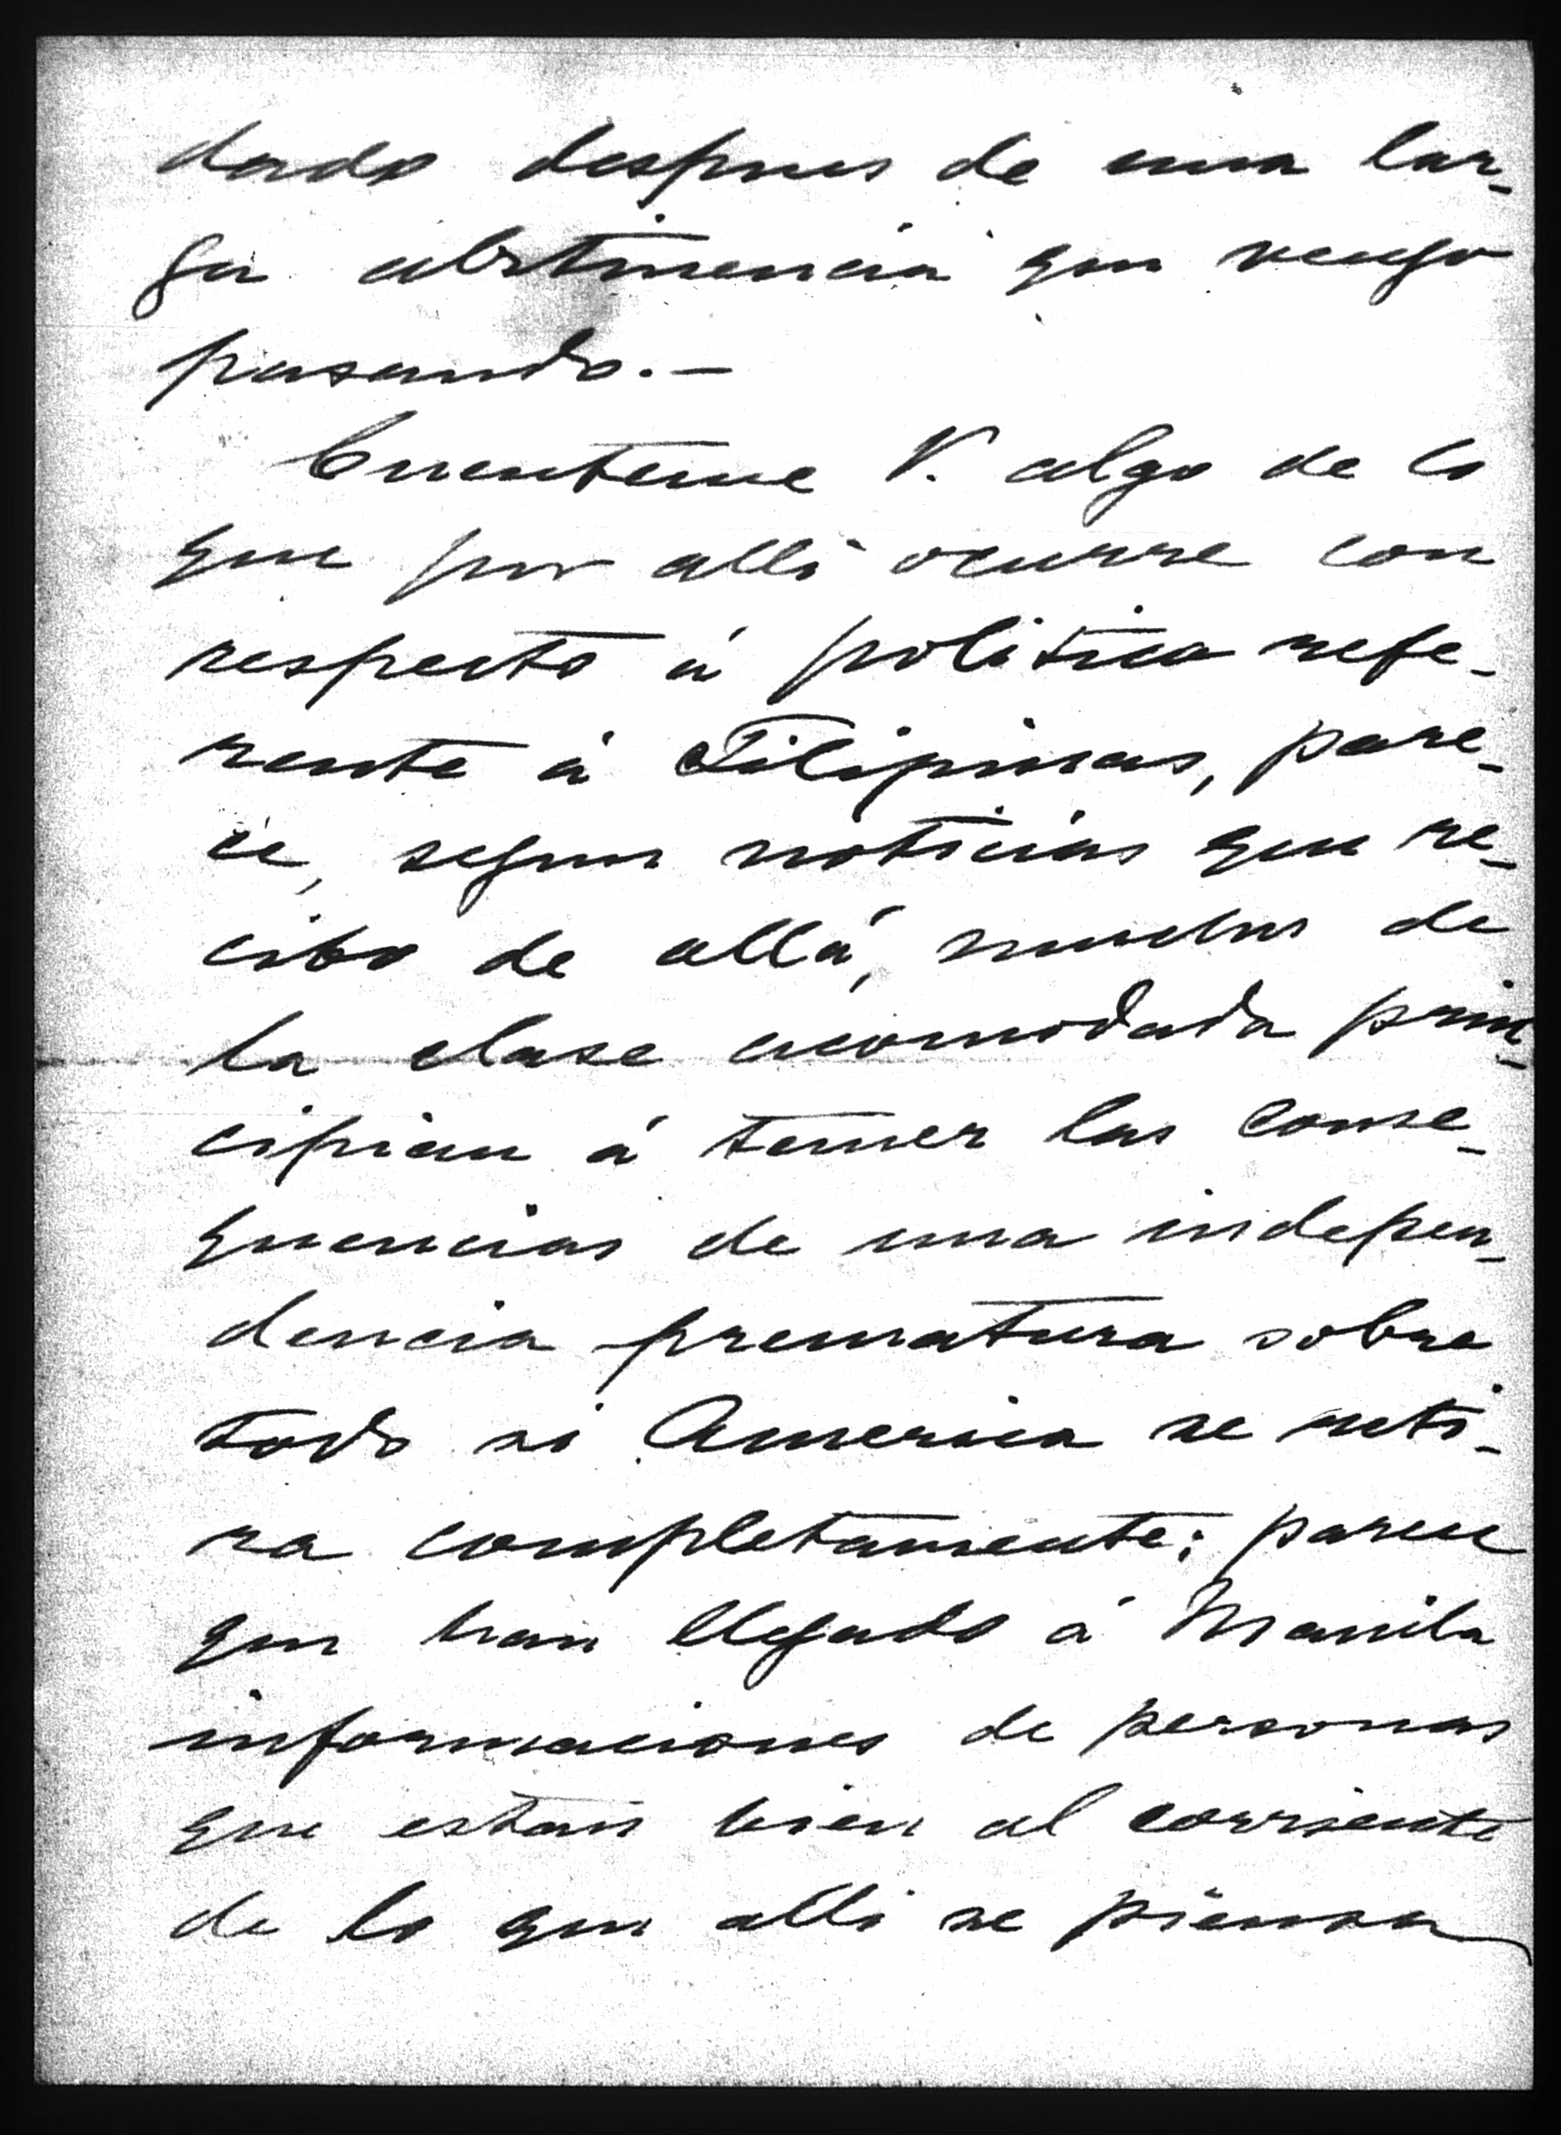 dado despues de una lar-
ga abstinencia que vengo
pasando.—
Cuenteme V. algo de lo
que por alli ocurre con
respecto á politica refe-
rente á Filipinas, pare-
ce, segun noticias que re-
cibo de allá, muchos de
la clase acomodada prin-
cipian á temer las conse-
quencias de una indepen-
dencia prematura sobre
todo si America se reti-
ra completamente; parece
que han llegado á Manila
informaciones de personas
que estan bien al corriente
de lo que alli se piensa